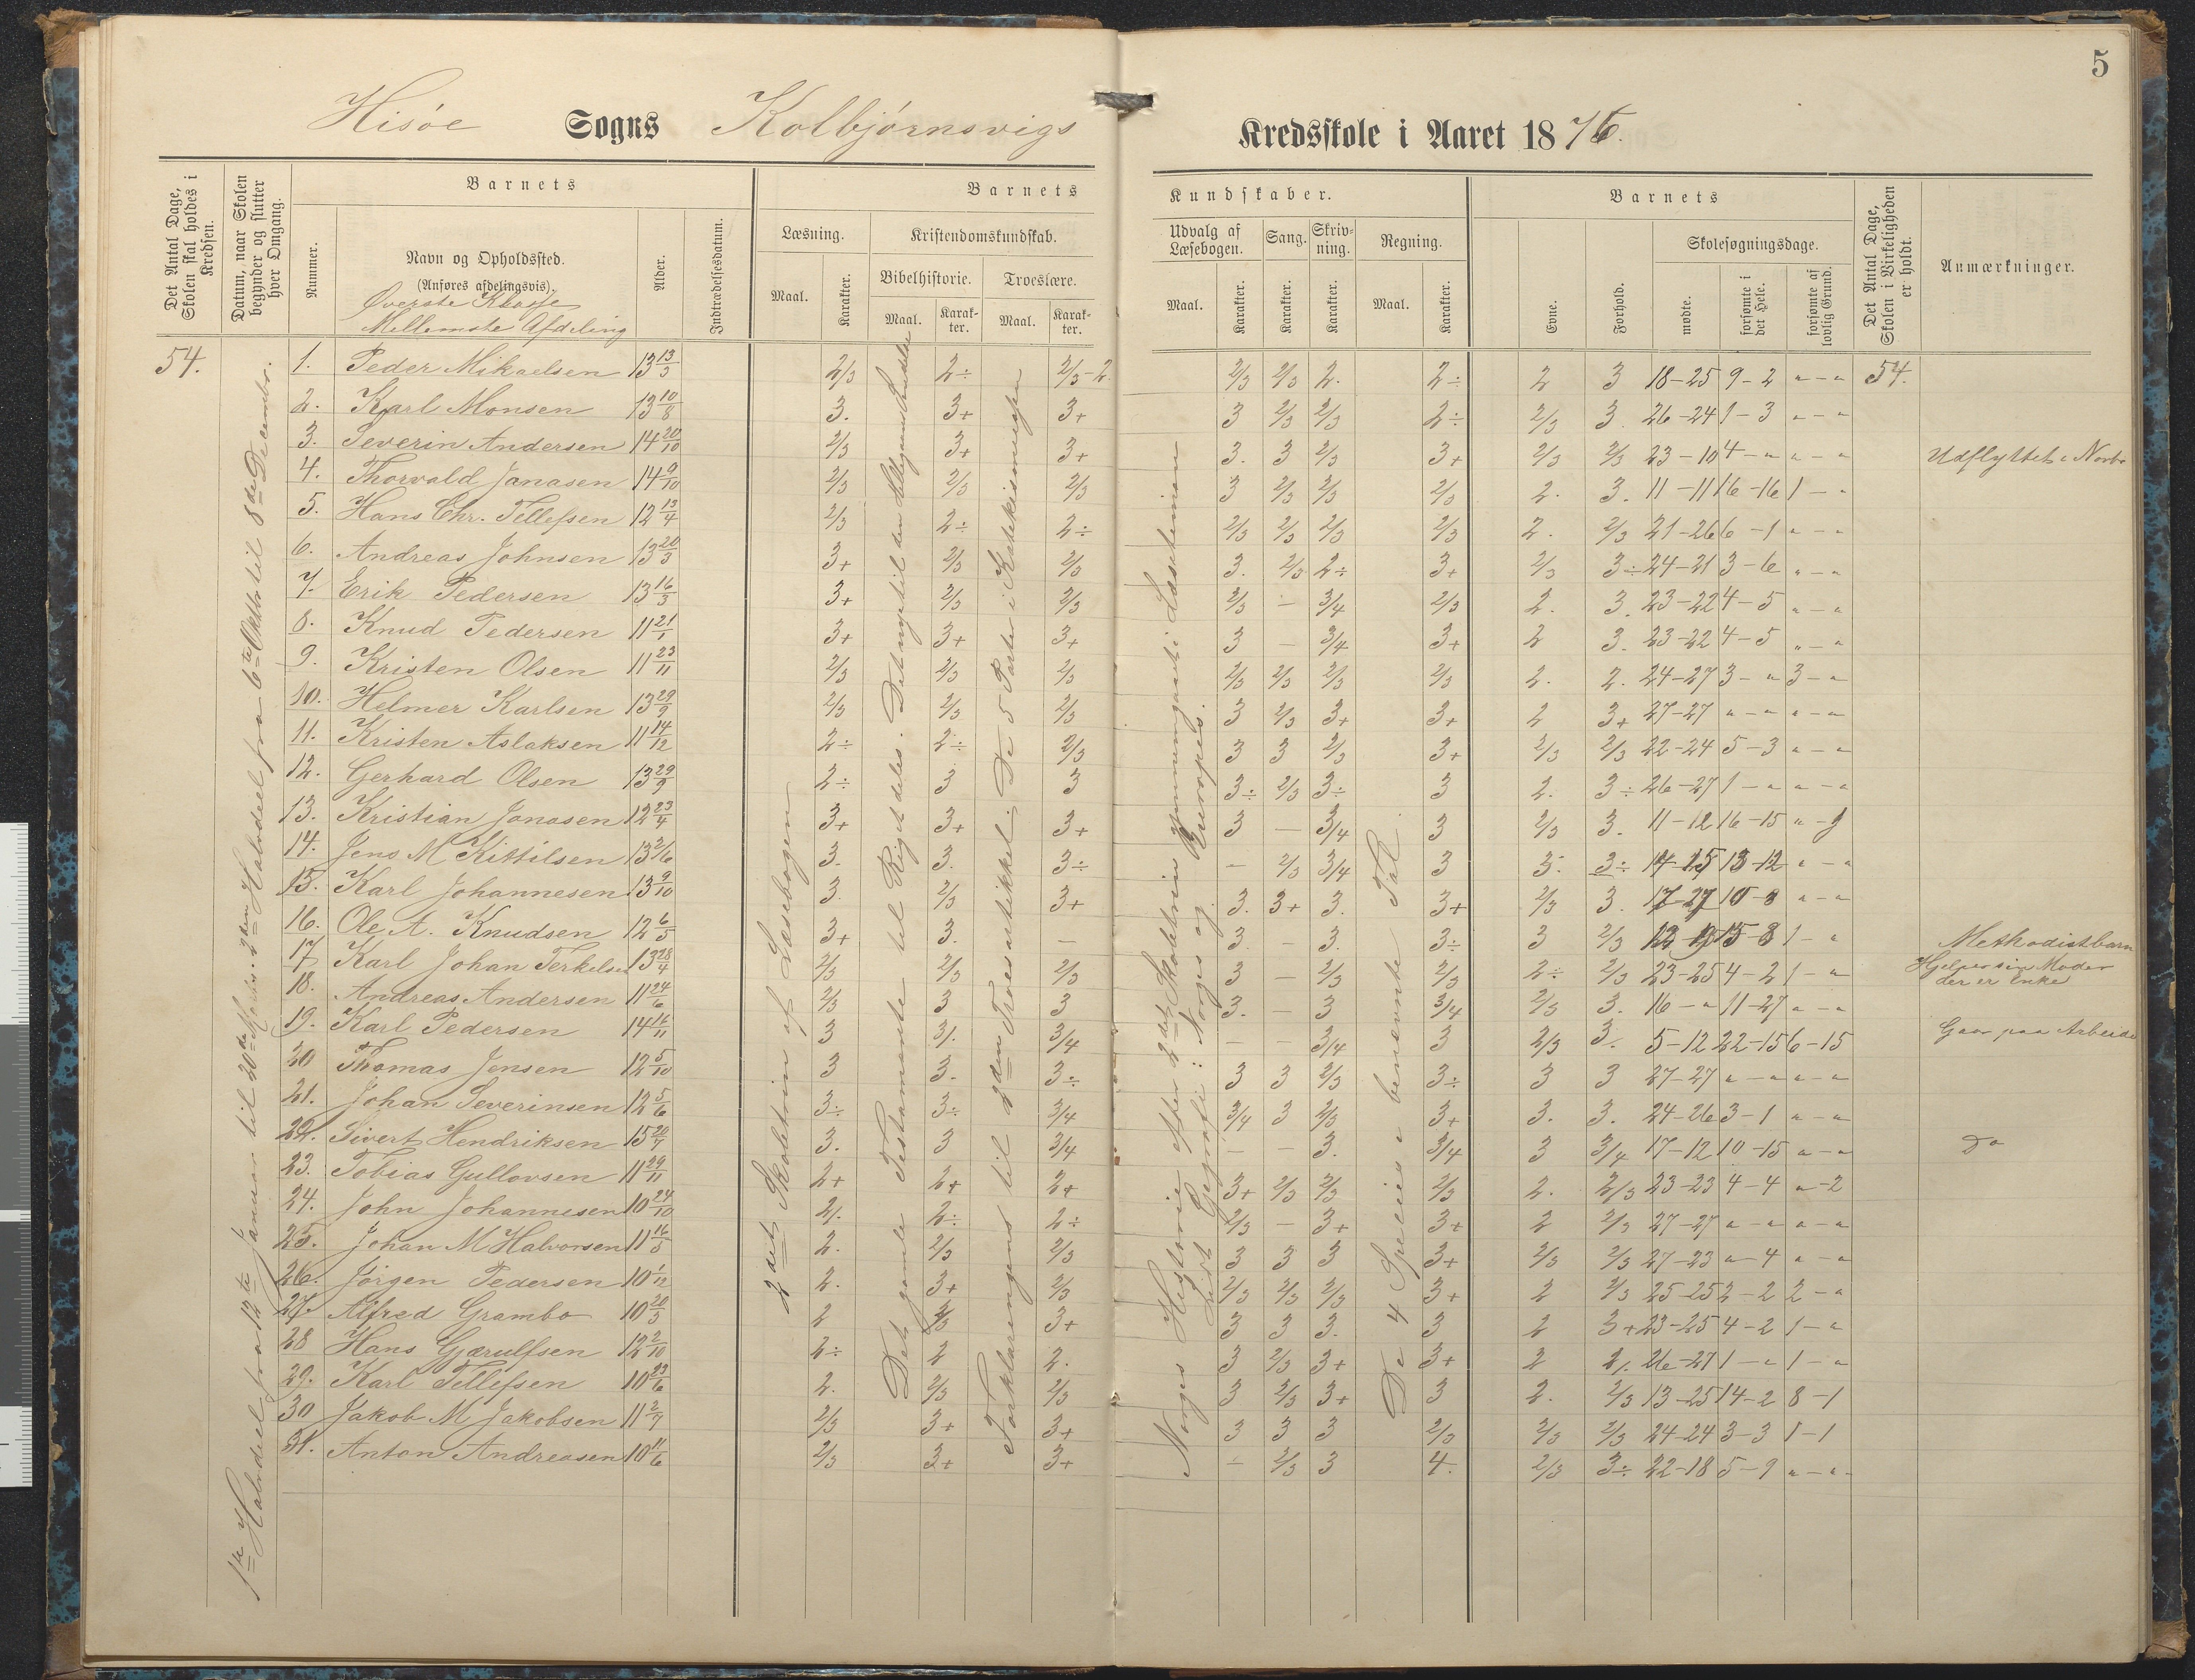 5
Hisöe Sogns Kolbjörnsvigs Kredsskole i Aaret 1876.
Det Antal Dage, Skolen skal holdes i Kredsen.
Datum, naar Skolen begynder og slutter hver Omgang.
Barnets
Nummer.
Navn og Opholdssted.
(Anføres afdelingsvis).
Överste Klasse
Mellemste Afdeling
Alder.
Indtrædelsesdatum.
Barnets Kundskaber.
Læsning.
Maal.
Karakter.
Kristendomskundskab.
Bibelhistorie.
Maal.
Karakter.
Troeslære.
Maal.
Karakter.
Udvalg af Læsebogen.
Maal.
Karakter.
Sang.
Karakter.
Skrivning.
Karakter.
Regning.
Maal.
Karakter.
Barnets
Evne.
Forhold.
Skolesøgningsdage.
mødte.
forsømte i det Hele.
forsømte af lovlig Grund.
Det Antal Dage, Skolen i Virkeligheden er holdt.
Anmærkninger.
1ste Halvdeel fra 12te Januar til 20de Marts. 2den Halvdeel fra 6te Oktbr til 8de Decembr.
2det Skoletrin af Læsebogen
Det gamle Testamente til Rigets deles. Det nye til den
Forklaringens til 3den Troesartikkel; De 5 Parter i Katekismusen
Norges Historie efter 2det Skoletrin gjennemgaaet i Læsetimen
Lidt Geografi: Norges og Europas.
De 4 Speties i benævnte Tal.
54. 1. Peder Mikaelsen 13 13/3 2/3 2÷ 2/3-2. 2/3 2/3 2. 2÷ 2 3 18-25 9-2 "-" 54.
2. Karl Monsen 13 10/8 3. 3+ 3+ 3 2/3 2/3 2÷ 2/3 3. 26-24 1-3 "-"
3. Severin Andersen 14 20/10 2/3 3+ 3+ 3. 3 2/3 3+ 2/3 2/3 23-10 4-" "-" Udflyttet i Novbr
4. Thorvald Janasen 14 9/10 2/3 2/3 2/3 3 2/3 2/3 2/3 2. 3. 11-11 16-16 1-"
5. Hans Chr. Tellefsen 12 13/4 2/3 2÷ 2÷ 2/3 2/3 2/3 2/3 2. 2/3 21-26 6-1 "-"
6. Andreas Johnsen 13 20/3 3+ 2/3 2/3 3. 2/3 2÷ 3+ 2/3 3÷ 24-21 3-6 "-"
7. Erik Pedersen 13 16/3 3+ 2/3 2/3 2/3 - 3/4 2/3 2. 3. 23-22 4-5 "-"
8. Knud Pedersen 11 21/1 3+ 3+ 3+ 3 - 3/4 3+ 2 3. 23-22 4-5 "-"
9. Kristen Olsen 11 23/11 2/3 2/3 2/3 2/3 2/3 2/3 2/3 2. 2. 24-27 3-" 3-"
10. Helmer Karlsen 13 29/9 2/3 2/3 2/3 3 2/3 3+ 3+ 2 3+ 27-27 "-" "-"
11. Kristen Aslaksen 11 14/12 2÷ 2÷ 2/3 3 3 2/3 3+ 2/3 2/3 22-24 5-3 "-"
12. Gerhard Olsen 13 29/9 2÷ 3 3 3÷ 2/3 3÷ 3 2. 3÷ 26-27 1-" "-"
13. Kristian Jonasen 12 23/4 3+ 3+ 3+ 3 - 3/4 3 2/3 3. 11-12 16-15 "-9
14. Jens M Kittilsen 13 2/6 3. 3. 3÷ - 2/3 3/4 3 3. 3÷ 14-15 13-12 "-"
15. Karl Johannesen 13 9/10 3. 2/3 3+ 3. 3+ 3. 3+ 2/3 3. 17-27 10-8 "-"
16. Ole A. Knudsen 12 6/5 3+ 3. - 3. - 3. 3÷ 3 2/3 12-19 15-8 1-" Methodistbarn
17 Karl Johan Terkelsen 13 28/4 2/3 2/3 2/3 3 - 2/3 2/3 2÷ 2/3 23-25 4-2 1-" Hjelper sin Moder der er Enke
18. Andreas Andersen 11 24/6 2/3 3 3 3. - 3 3/4 2/3 3. 16-" 11-27 "-"
19. Karl Pedersen 14 14/11 3 3/. 3/4 - - 3/4 3 2/3 3. 5-12 22-15 6-15 Gaar paa Arbeide
20 Thomas Jensen 12 5/10 3 3. 3÷ 3 3 2/3 3÷ 3 3 27-27 "-" "-"
21. Johan Severinsen 12 5/6 3÷ 3÷ 3/4 3/4 3 2/3 3+ 3. 3. 24-26 3-1 "-"
22. Sivert Hendriksen 15 20/7 3. 3 3/4 - - 3. 3/4 3 3/4 17-12 10-15 "-" Do
23. Tobias Gullovsen 11 29/11 2+ 2+ 2+ 3+ 2/3 2/3 2/3 2. 2/3 23-23 4-4 "-2
24. John Johannesen 10 24/10 2/. 2÷ 2÷ 2/3 - 3+ 3+ 2 2/3 27-27 "-" "-"
25. Johan M Halvorsen 11 16/5 2. 2/3 2/3 3 3 3 3+ 2/3 2/3 27-23 "-4 "-"
26. Jörgen Pedersen 10 1/12 2. 3+ 2/3 2/3 2/3 2/3 3+ 2 2/3 25-25 2-2 2-"
27. Alfred Grambo 10 20/3 2 2/3 3+ 3 3 3. 3 2 3+ 23-25 4-2 1-"
28 Hans Gjærulfsen 12 2/10 2÷ 2 2. 3 2/3 3+ 3+ 2 2/. 26-27 1-" 1-"
29. Karl Tellefsen 10 23/6 2. 2/3 2/3 3 2/3 3+ 3 2. 2/3 13-25 14-2 8-1
30 Jakob M Jakobsen 11 2/7 2/3 3+ 3+ 3 3 3 2/3 2/3 2/3 24-24 3-3 1-1
31. Anton Andreasen 10 11/6 2/3 3+ 3+ - 2/3 3 4. 2/3 3÷ 22-18 5-9 "-"